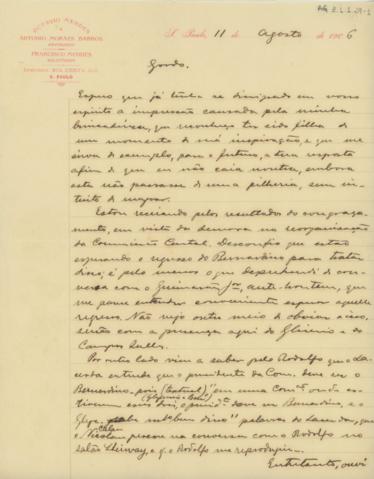 OCTAVIO MENDES
ARTHUR MORAES BARROS
ADVOGADOS
FRANCISCO MENDES
SOLICITADOR
S. PAULO
S. Paulo, 11 de Agosto de 1906
Gordo.
Espero que já tenha se dissipado em vosso
espirito a impressão causada pela minha
brincadeira, que reconheço ter sido filha de
um momento de má inspiração, e que me
sirva de exemplo, para o futuro, a tera resposta
afim de que eu não caia noutra, embora
esta não passasse de uma pilheria, sem in-
tuito de magoar.
Estou receiando pelos resultados do congraça-
mento, em vista da demora na reorganisação
da Commissão Central. Desconfio que estão
esperando o regresso do Bernardino para tratar
disso; é pelo menos o que deprehendi da con-
versa com o Guimarães Jor, ante-hontem, que
me parece entender conveniente esperar aquelle
regresso. Não vejo outro meio de obviar a isso,
senão com a presença aqui do Glicerio e do
Campos Salles.
Por outro lado vim a saber pelo Rodolfo que o La-
cerda entende que o presidente da Com. deve ser o
Bernardino, pois (textual) "em uma Comão onde es-
tiverem esses dois, o presidte deve ser Bernardino, e o
(Glycerio e Bern.)
Glyc. sabe mto bem disso" palavras do Lacerda, que
o Nicolau pescou na conversa com o Rodolfo no
salão Steinway, e q. o Rodolfo me reproduziu...
Entretanto, ouvi